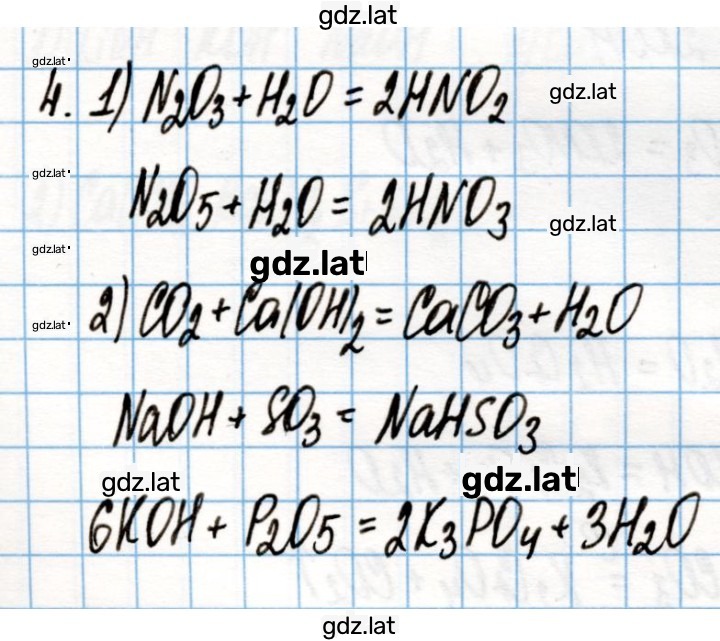 gdz.lat
gdz.lat
4. 1) N₂O₃ + H₂O = 2HNO₂ gdz.lat
gdz.lat
N₂O₅ + H₂O = 2HNO₃ gdz.lat
gdz.lat gdz.lat
2) CO₂ + Ca(OH)₂ = CaCO₃ + H₂O
gdz.lat
NaOH + SO₃ = NaHSO₃
gdz.lat gdz.lat
6KOH + P₂O₅ = 2K₃PO₄ + 3H₂O
gdz.lat